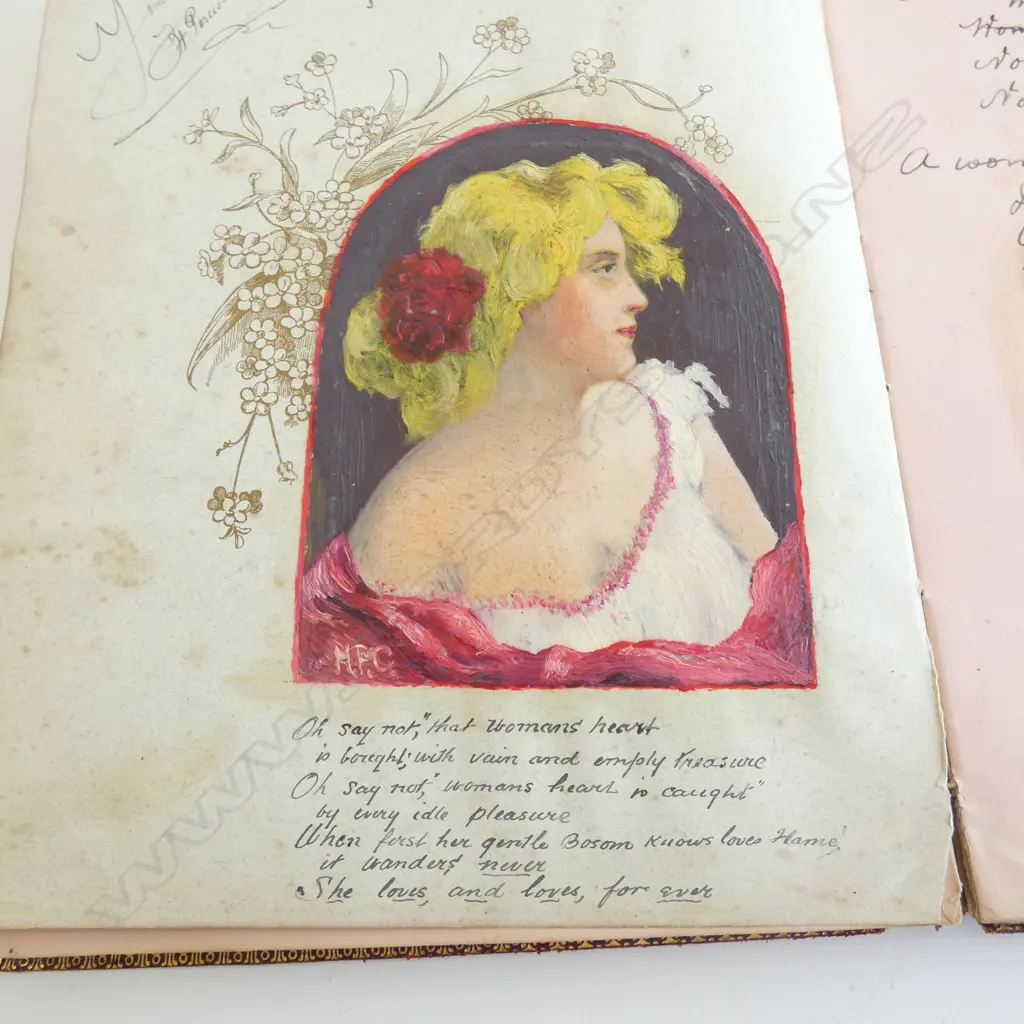 MFC
Oh say not," that womans heart
is bought; with vain and empty treasure
Oh say not," womans heart is caught"
by every idle pleasure
When first her gentle Bosom knows loves Flame,
it wanders never
She loves, and loves, for ever
A